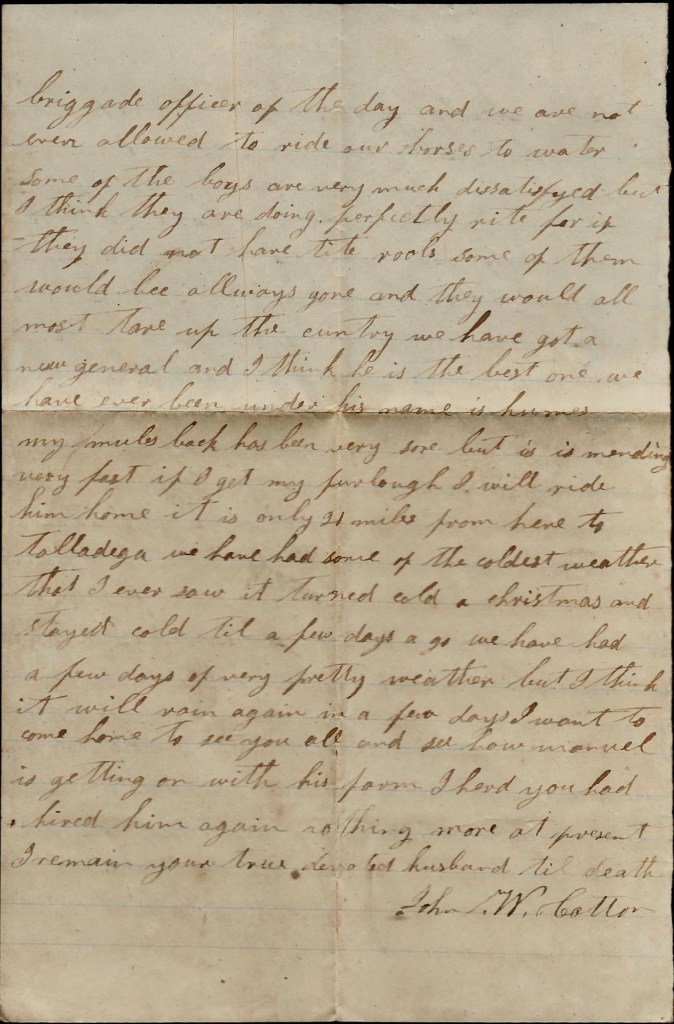 briggade officer of the day and we are not
even allowed to ride our horses to water
some of the boys are very much dissatisfyed but
I think they are doing perfectly rite for if
they did not have tite rools some of them
would bee allways gone and they would all
most tare up the cuntry we have got a
new general and I think he is the best one we
have ever been under his name is humes
my mules back has been very sore but is is mending
very fast if I get my furlough I will ride
him home it is only 21 miles from here to
talladega we have had some of the coldest weather
that I ever saw it turned cold a christmas and
stayed cold til a few days a go we have had
a few days of very pretty weather but I think
it will rain again in a few days I want to
come home to see you all and see how manuel
is getting on with his farm I herd you had
hired him again nothing more at present
I remain your true devoted husband til death
John W. Cotton